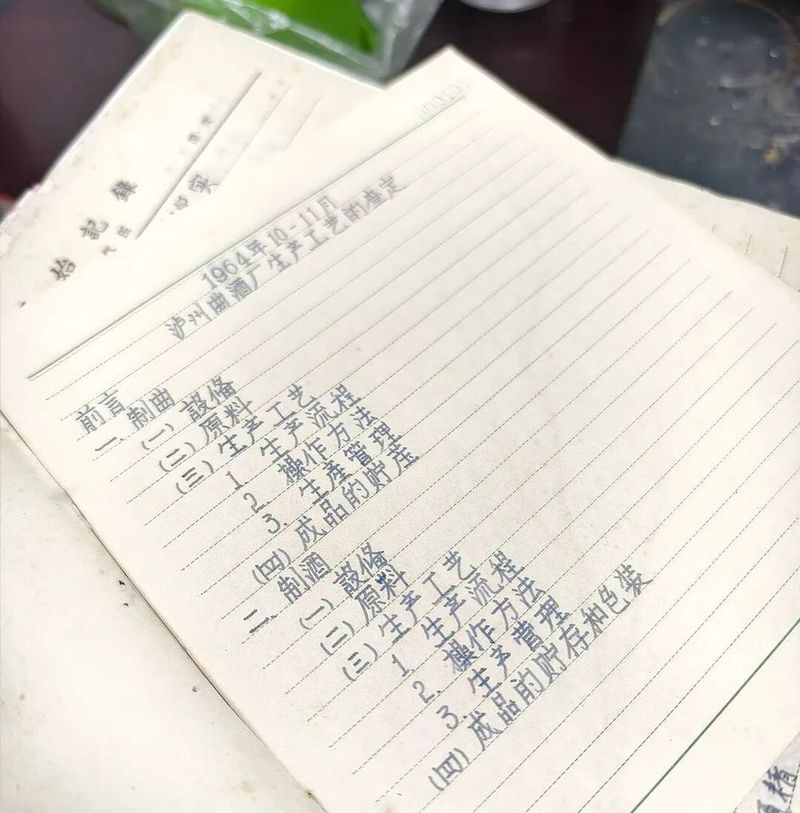 始記錄
实
1964年10-11月
泸州曲酒厂生产工艺的查定
前言
一、制曲
(一) 設俻
(二) 原料
(三) 生产工艺
1. 生产流程
2. 操作方法
3. 生産管理
(四) 成品的贮
二、制酒
(一) 設俻
(二) 原料
(三) 生产工艺
1. 生产流程
2. 操作方法
3. 生产管理
(四) 成品的贮存和包装